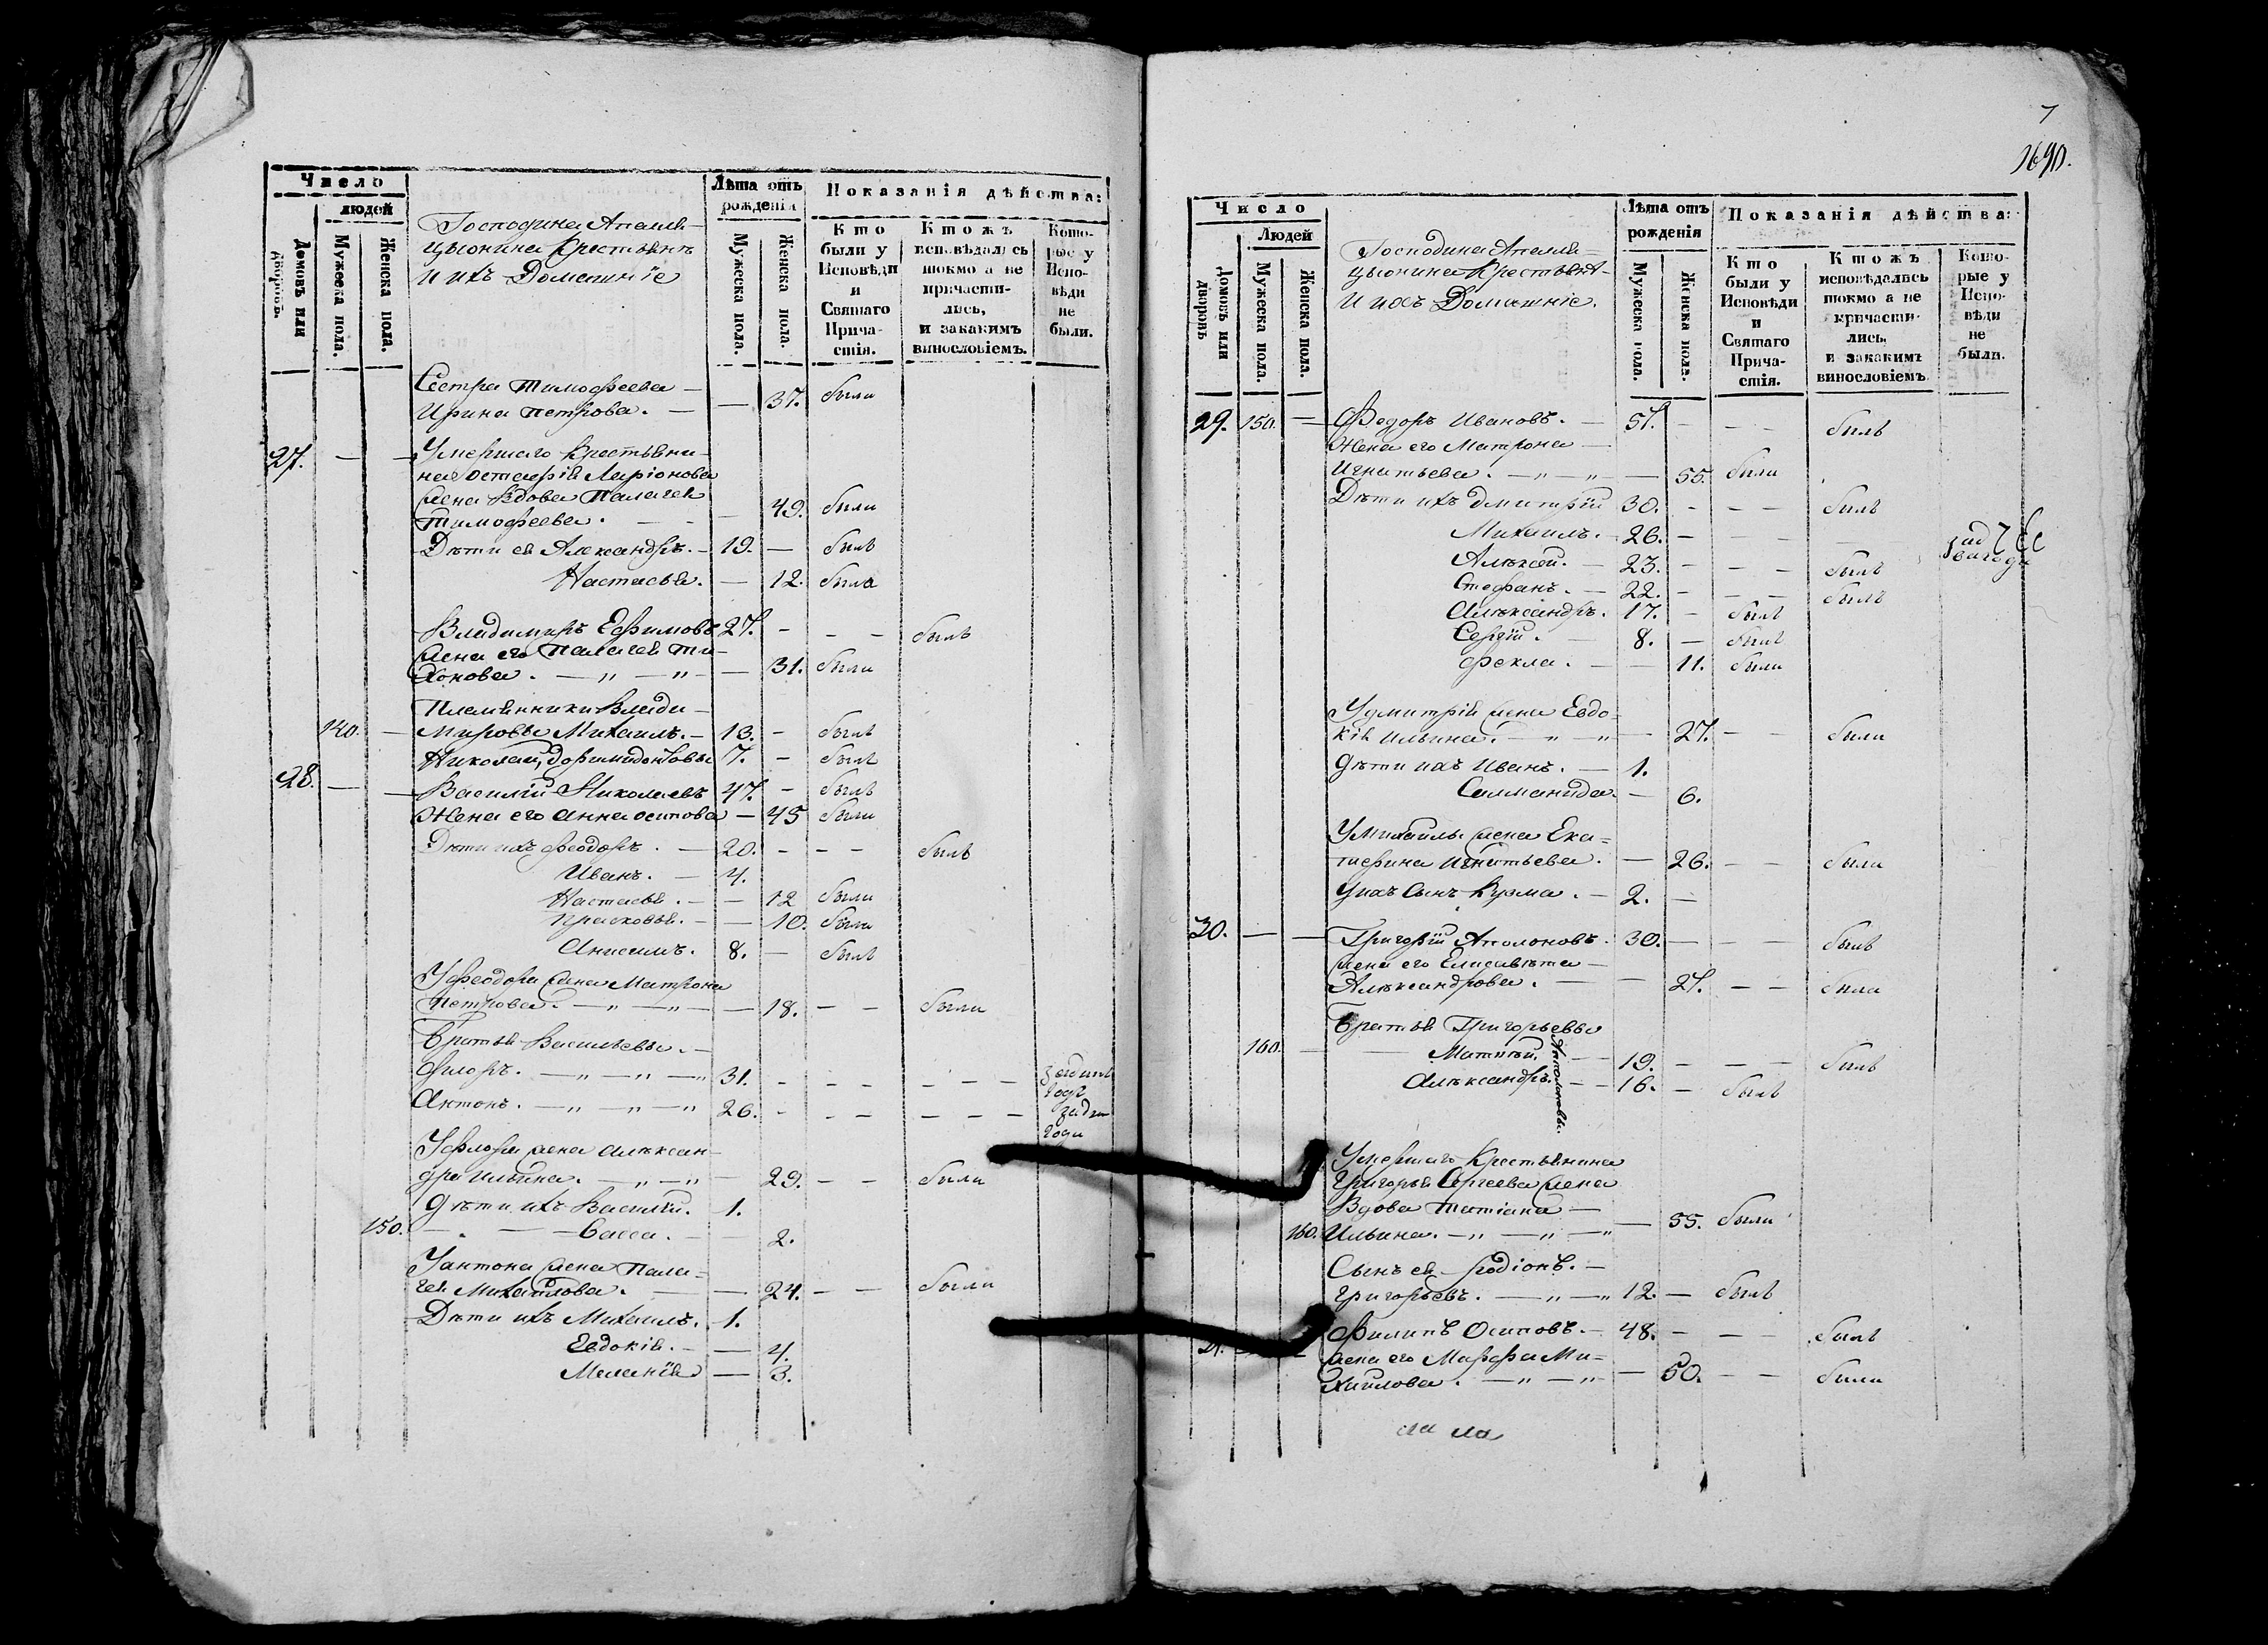 Число
людей
Домовъ или дворовъ.
Мужеска пола.
Женска пола.
Господина
Крестьянъ
и ихъ Домашніе
Лѣта отъ рожденія
Мужеска пола.
Женска пола.
Показанія дѣйства:
Кто были у Исповѣди и Святаго Причастія.
Ктожъ исповѣдались токмо а не причастились, и закакимъ винословіемъ.
Которые у Исповѣди не были.
Сестра Тимофеева —
Ирина Петрова. — — 37. были
27. — — Умершаго Крестьяни-
на Евстафія Ларіонова
жена вдова Палагея
Тимофеева. — — 49. были
Дѣти ея Александръ. — 19. — былъ
Настасья. — 12. была
Владимиръ Ефимовъ 27. — — — былъ
жена его Палагея Ти-
хонова. — „ — „ — — 31. были
Племянники Влади-
140. — мировы Михаилъ. — 13. — былъ
Николай, Доримидонтовы 7. — былъ
28. — — Василій Николаевъ 47. — былъ
Жена его Анна Осипова — 45 были
Дѣти ихъ Феодоръ. — 20. — — — былъ
Иванъ. — 4.
Настасья. — — 12 были
Прасковья. — — 10. были
Анисимъ. 8. — былъ
У Феодора жена Матрона
Петрова. — „ — „ — — 18. — — были
Братья Васильевы. —
Флоръ. — „ — „ — „ 31. — — — — — —
Антонъ. — „ — „ — „ 26. — — — — — —
У Флора жена Алексан-
дра Ильина. — „ — „ — 29. — — были
Дѣти ихъ Василій. 1.
150. — — Васса. — 2.
У Антона жена Пала-
гея Михайлова. — — 24. — — были
Дѣти ихъ Михаилъ. 1.
Евдокія. — — 4.
Меланія — 3.
7
1690.
Число
Людей
Домовъ или дворовъ
Мужеска пола.
Женска пола.
Господина
Крестьян-
и ихъ Домашніе.
Лѣта отъ рожденія
Мужеска пола.
Женска пола.
Показанія дѣйства:
Кто были у Исповѣди и Святаго Причастія.
Ктожъ исповѣдались токмо а не причастились, и закакимъ винословіемъ
Которые у Исповѣди не были.
29. 150. — Федоръ Ивановъ. — 57. — — — былъ
Жена его Матрона —
Игнатьева. — „ — „ — 55. были
Дѣти ихъ Дмитрій 30. — — — былъ
Михаилъ. — 26. — — —
Алексѣй. — 23. — — — былъ
Стефанъ. — 22. — — — былъ
Александръ. 17. — былъ
Сергій. — 8. — былъ
Фекла. — — 11. были
У Дмитрія жена Евдо-
кія Ильина. — „ — „ — 27. — — были
Дѣти ихъ Иванъ. — 1.
Саломанида. — 6.
У Михаилы жена Ека-
терина Игнатьева. — 26. — — были
У нихъ сынъ Кузма. — 2. —
30. — — Григорій Аполоновъ. 30. — — — былъ
жена его Елисавѣта —
Александрова. — — 27. — — была
Братья Григорьевы
160. — — Матвѣй. — 19. — — — былъ
Александръ. — — 16. — былъ
Аполоновы.
Умершаго Крестьянина
Григорья Сергеева жена
Вдова Татіана —
160. Ильина. — „ — „ — „ — 55. были
Сынъ ея Родіонъ. —
Григорьевъ. — „ — „ 12. — былъ
Филипъ Осиповъ. — 48. — — — былъ
жена его Марфа Ми-
хайлова. — „ — „ — 50. — — были